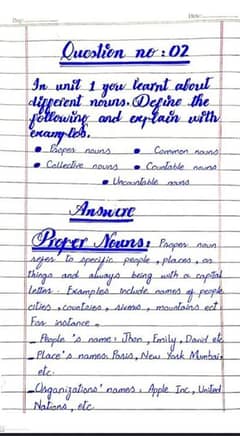 Date:
Day:
Question no : 02
In unit 1 you learnt about
different nouns. Define the
following and explain with
examples.
• Proper nouns • Common nouns
• Collective nouns • Countable nouns
• Uncountable nouns
Answere
Proper Nouns: Proper noun
refer to specific people, places, or
things and always being with a capital
letter. Examples include names of people
cities, countries, rivers, mountains ect.
For instance.
_ People's name: Jhon, Emily, David etc
_ Place's names: Paris, New York Mumbai,
etc.
_Organizations' names: Apple Inc, United
Nations, etc